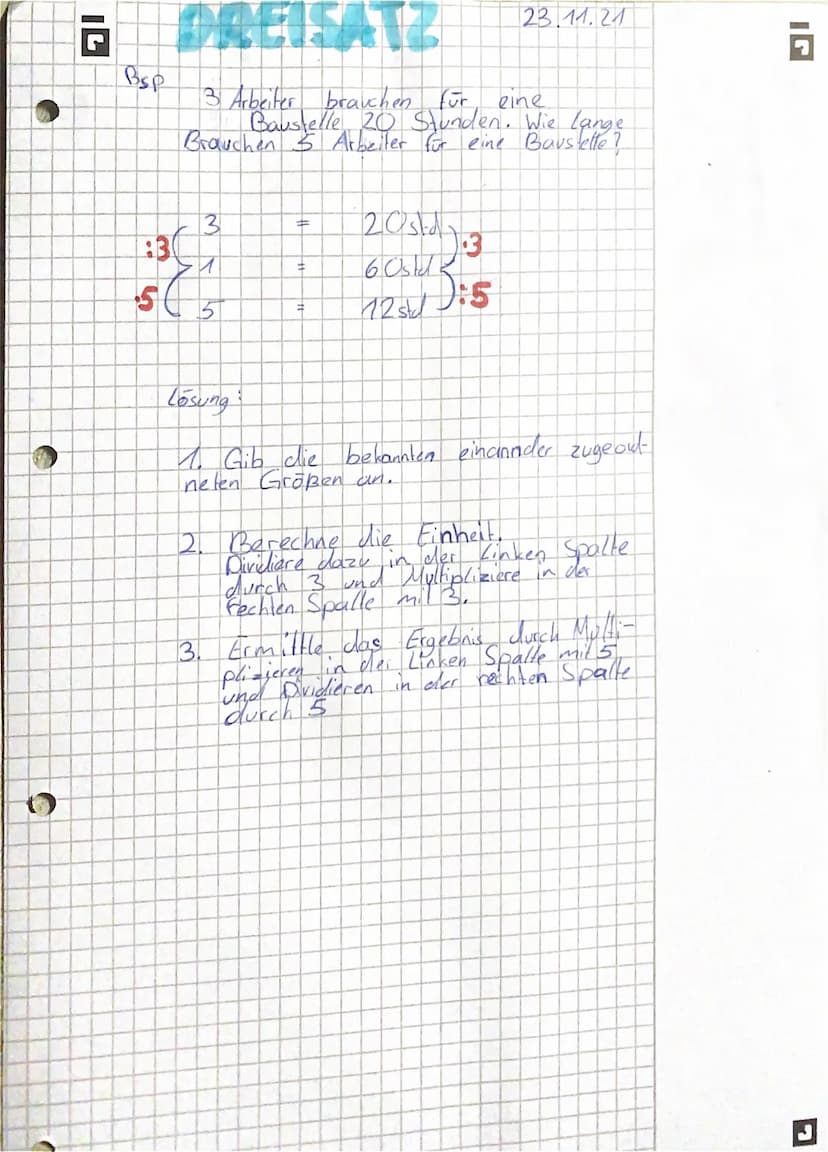 DREISATZ
23.11.21
Bsp
3 Arbeiter brauchen für eine
Baustelle 20 Stunden. Wie lange
Brauchen 5 Arbeiter für eine Baustelle?
3 = 20std
:3 ·3
1 = 60std
·5 :5
5 = 12std
Lösung:
1. Gib die bekannten einannder zugeord-
neten Größen an.
2. Berechne die Einheit.
Dividiere dazu in der Linken Spalte
durch 3 und Multipliziere in der
rechten Spalte mit 3.
3. Ermittle das Ergebnis durch Multi-
plizieren in der Linken Spalte mit 5
und Dividieren in der rechten Spalte
durch 5